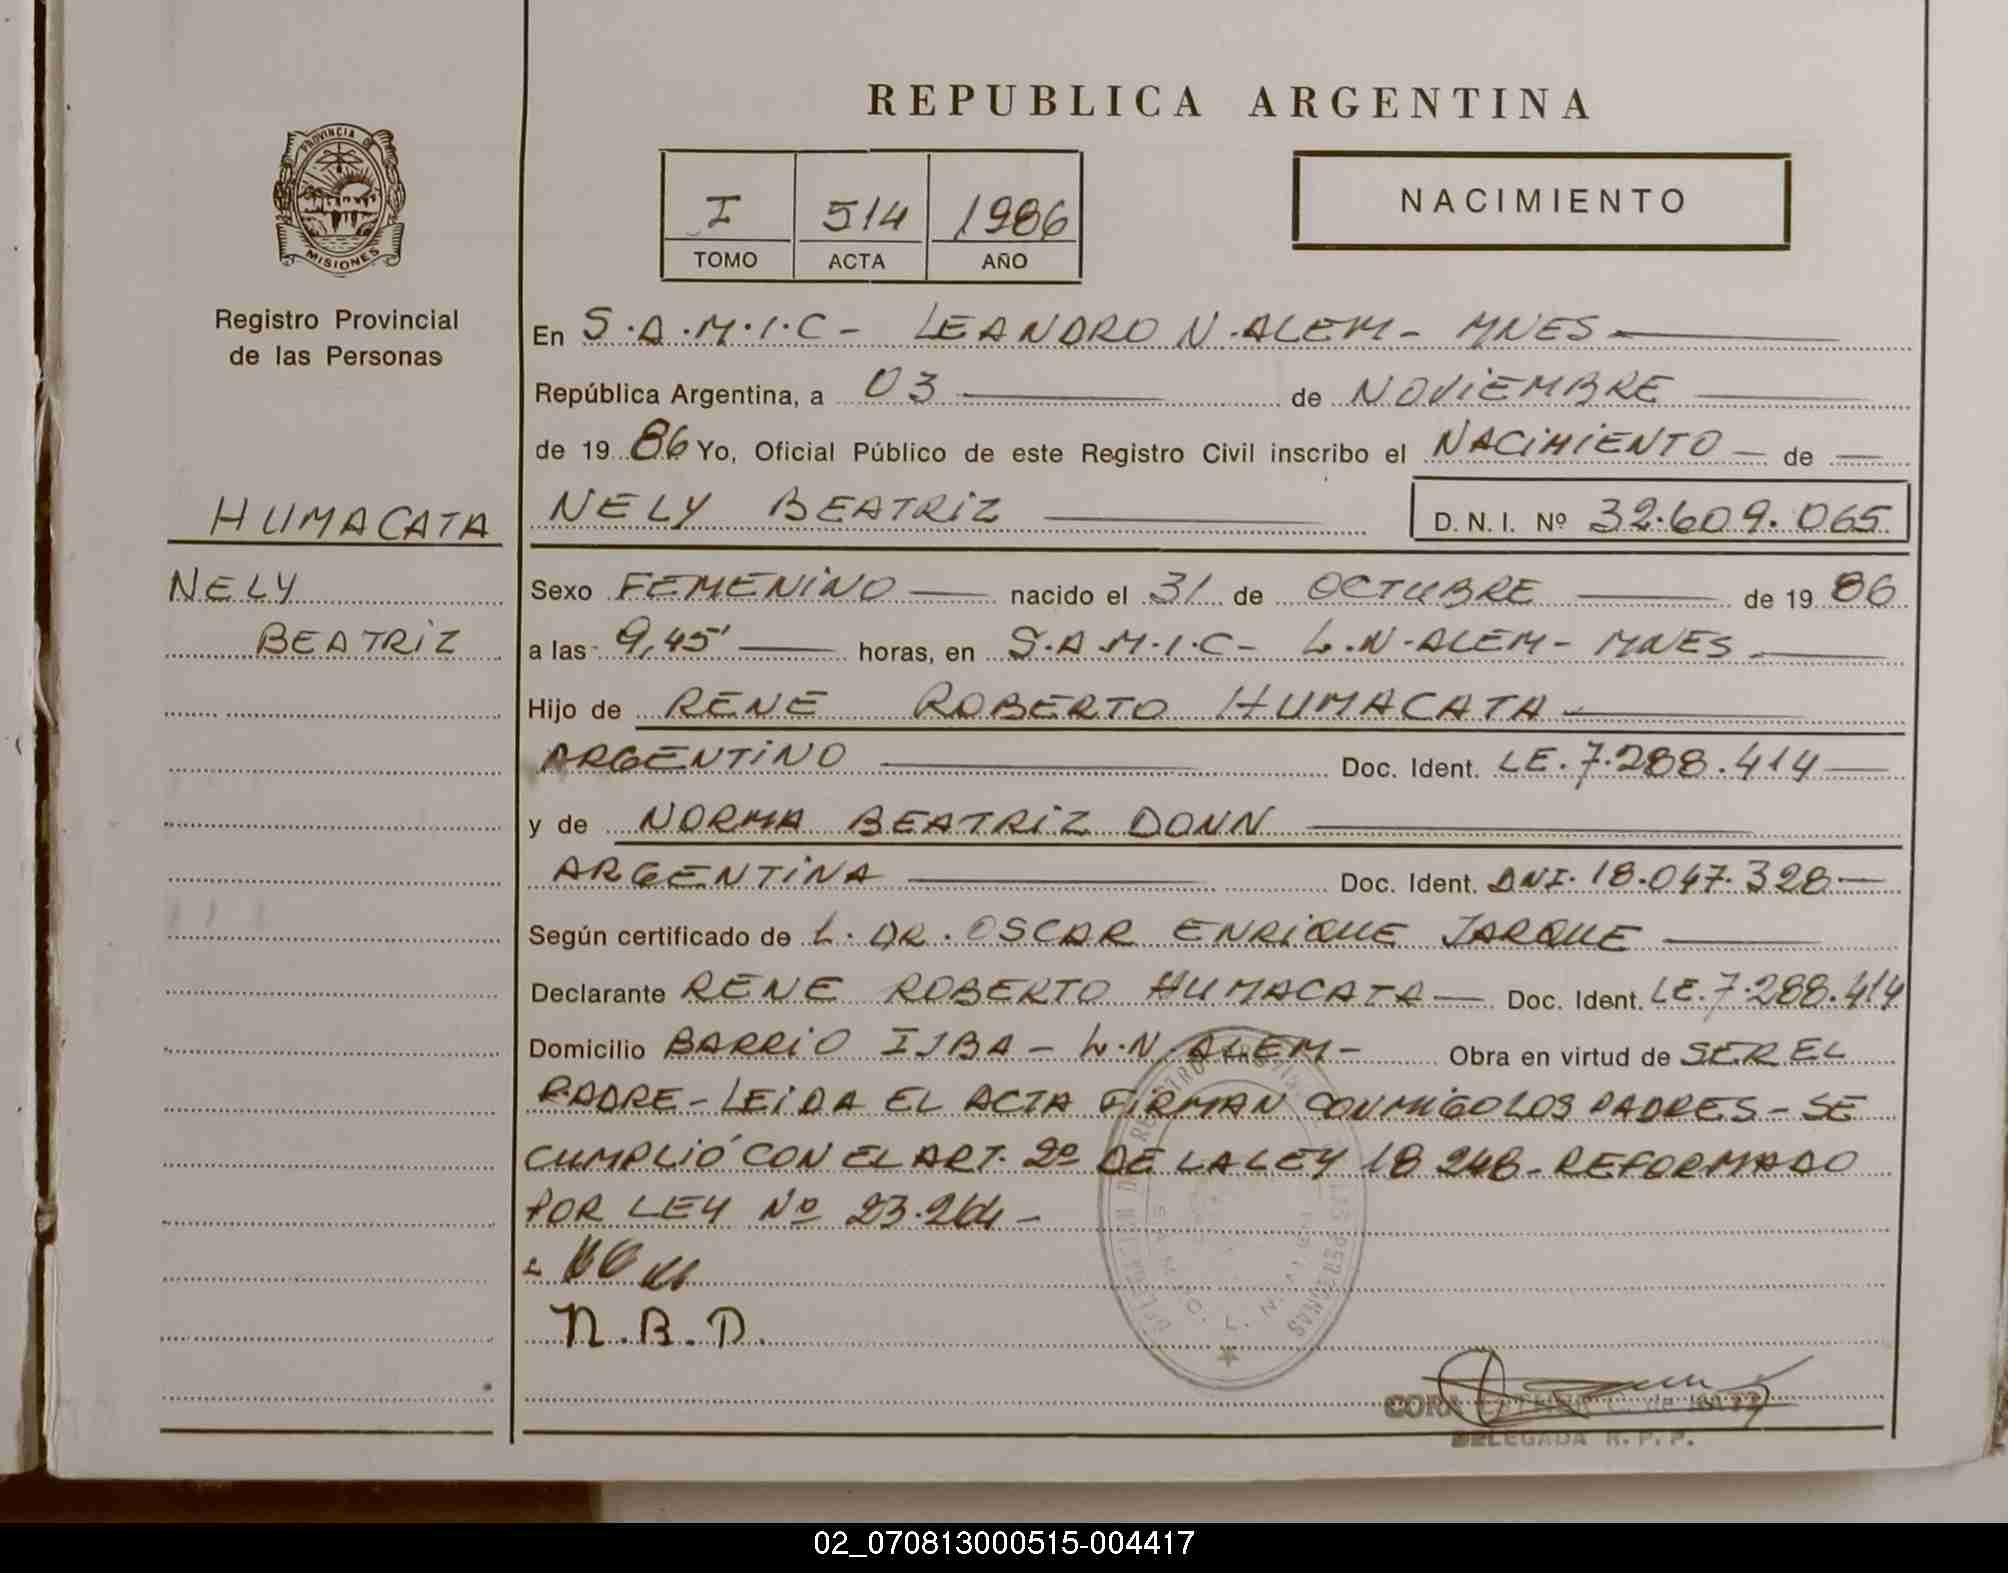 REPUBLICA ARGENTINA
PROVINCIA DE
MISIONES
Registro Provincial
de las Personas
I 514 1986
TOMO ACTA AÑO
NACIMIENTO
En S.A.M.I.C - LEANDRO N. ALEM - MNES
República Argentina, a 03 de NOVIEMBRE
de 19 86 Yo, Oficial Público de este Registro Civil inscribo el NACIMIENTO de
HUMACATA
NELY BEATRIZ D. N. I. Nº 32.609.065
NELY
BEATRIZ
Sexo FEMENINO nacido el 31 de OCTUBRE de 19 86
a las 9,45' horas, en S.A.M.I.C - L.N. ALEM - MNES
Hijo de RENE ROBERTO HUMACATA
ARGENTINO Doc. Ident. LE. 7.288.414
y de NORMA BEATRIZ DONN
ARGENTINA Doc. Ident. DNI. 18.047.328
Según certificado de L. DR. OSCAR ENRIQUE JARQUE
Declarante RENE ROBERTO HUMACATA Doc. Ident. LE. 7.288.414
Domicilio BARRIO - L.N. ALEM - Obra en virtud de SER EL
PADRE - LEIDA EL ACTA FIRMAN CONMIGO LOS PADRES - SE
CUMPLIÓ CON EL ART. 2º DE LA LEY 18 248 - REFORMADO
POR LEY Nº 23.264 -
N.B.D.
CORA
DELEGADA R. P. P.
02_070813000515-004417